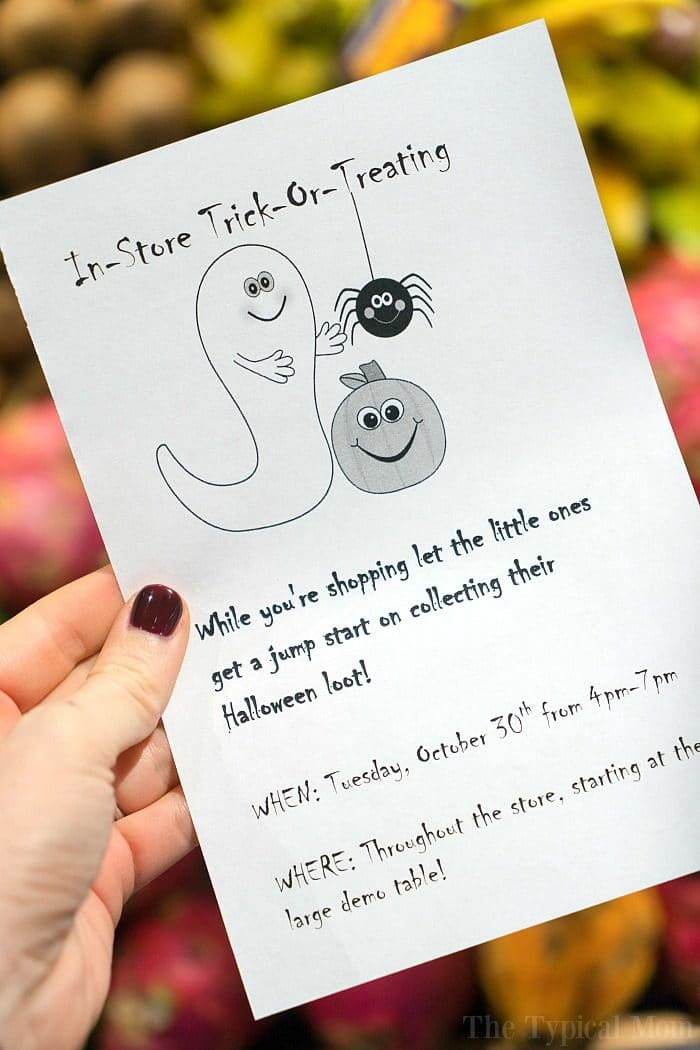 In-Store Trick-Or-Treating
While you're shopping let the little ones
get a jump start on collecting their
Halloween loot!
WHEN: Tuesday, October 30th from 4pm-7pm
WHERE: Throughout the store, starting at the
large demo table!
The Typical Mom